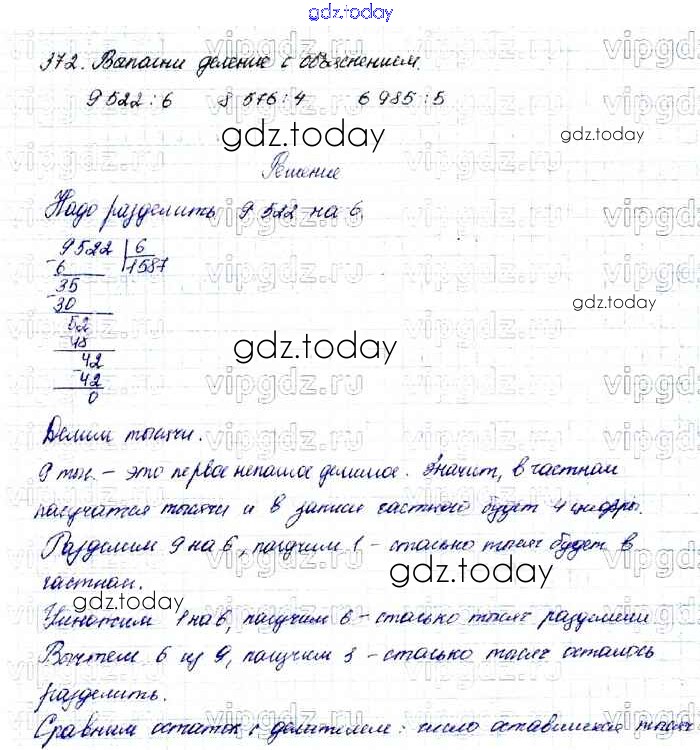 gdz.today
372. Выполни деление с объяснением.
9522:6 8576:4 6985:5
gdz.today
Решение
Надо разделить 9522 на 6.
9522 6
6 1587
35
30
gdz.today
52
48
gdz.today
42
42
0
Делим тысячи.
9 тыс. – это первое неполное делимое. Значит, в частном
получатся тысячи и в записи частного будет 4 цифры.
Разделим 9 на 6, получим 1 – столько тысяч будет в
частном.
gdz.today
gdz.today
Умножим 1 на 6, получим 6 – столько тысяч разделили
Вычтем 6 из 9, получим 3 – столько тысяч осталось
разделить.
Сравним остаток с делителем: число оставшихся тысяч